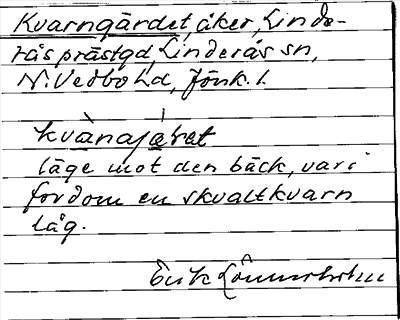 Kvarngärdet, åker, Linde-
rås prästgd, Linderås sn,
N. Vedbo hd, Jönk. l.
kvànajáret
läge mot den bäck, vari
fordom en skvaltkvarn
låg.
Erik Lönnerholm